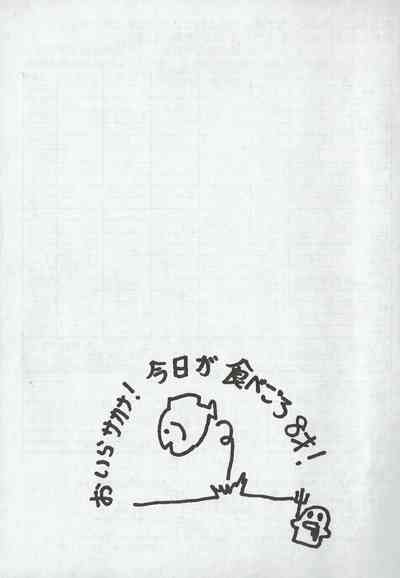 おいらサカナ！今日が食べごろ8才！